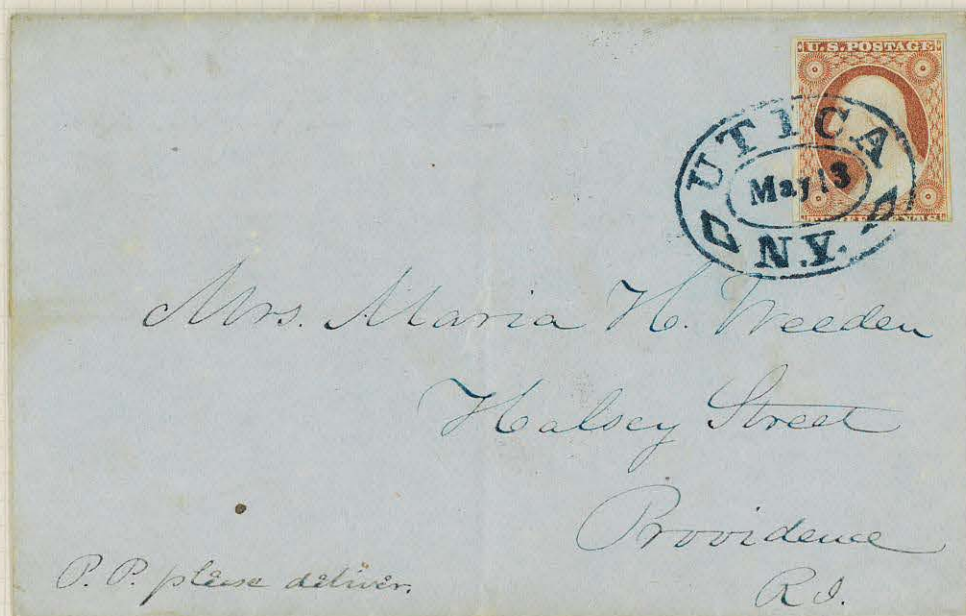 U.S. POSTAGE
UTICA
May 13
N.Y.
Mrs. Maria H. Weeden
Halsey Street
Providence
R.I.
P.P. please deliver.